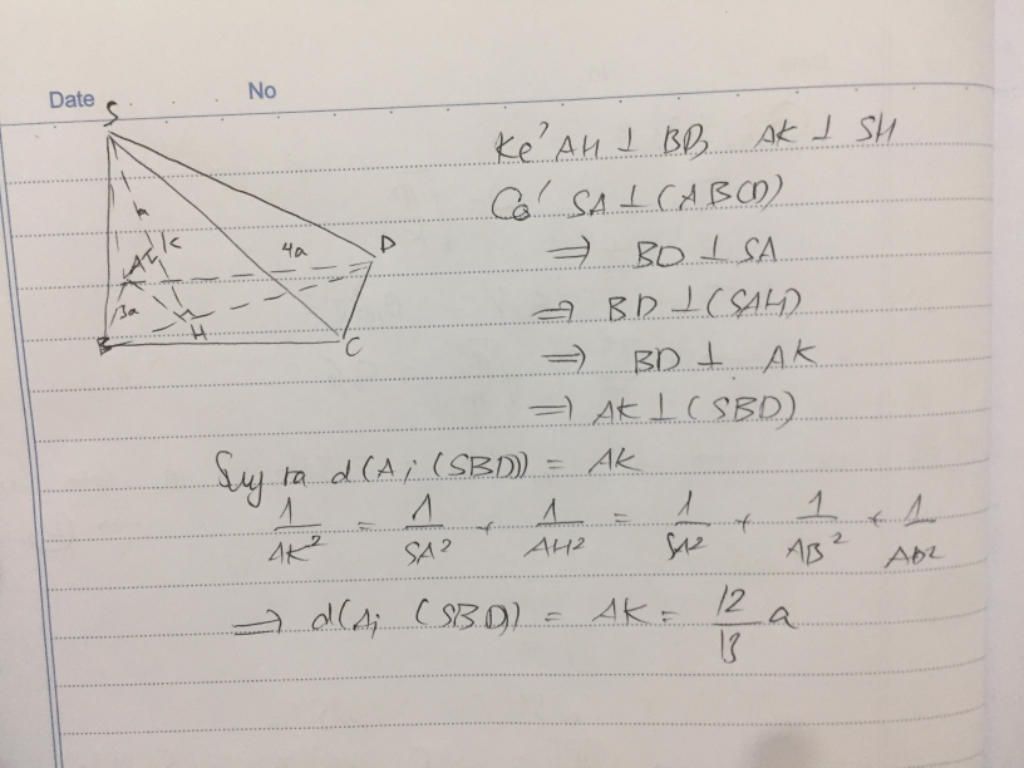 Date No
S
a
K
A
4a
D
3a
H
B
C
Kẻ AH ⊥ BD, AK ⊥ SH
Có SA ⊥ (ABCD)
⇒ BD ⊥ SA
⇒ BD ⊥ (SAH)
⇒ BD ⊥ AK
⇒ AK ⊥ (SBD)
Suy ra d(A; (SBD)) = AK
1/AK² = 1/SA² + 1/AH² = 1/SA² + 1/AB² + 1/AD²
⇒ d(A; (SBD)) = AK = 12/13 a